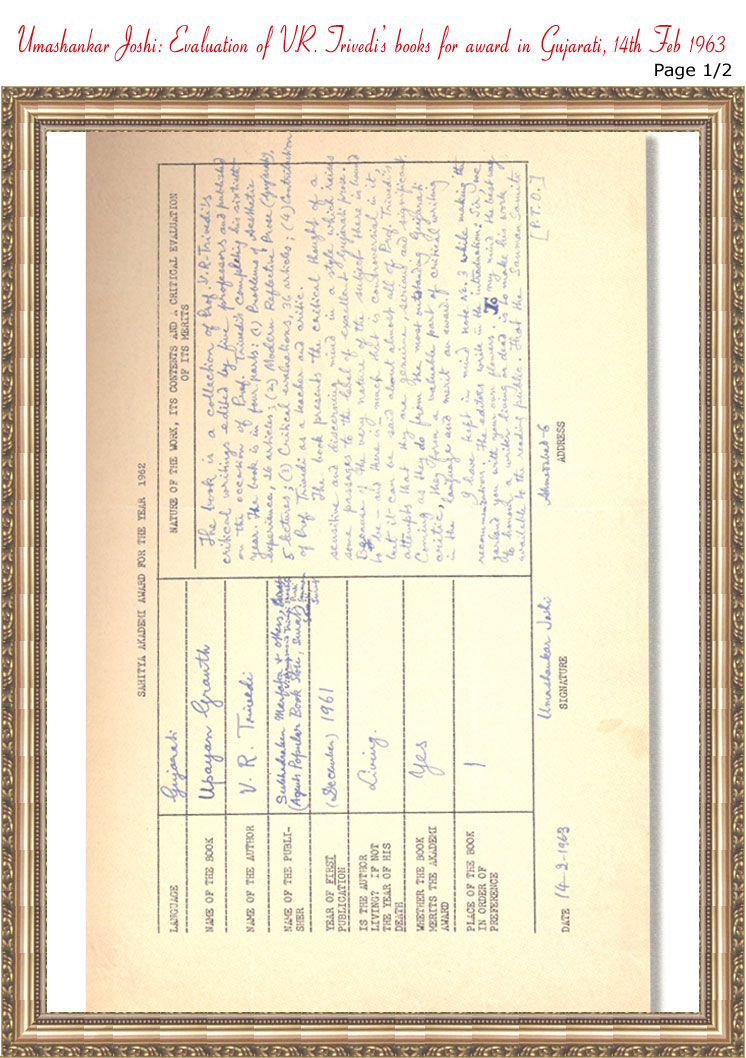 Umashankar Joshi: Evaluation of V.R. Trivedi's books for award in Gujarati, 14th Feb 1963
Page 1/2
SAHITYA AKADEMI AWARD FOR THE YEAR 1962
LANGUAGE
Gujarati
NAME OF THE BOOK
Upayan Granth
NAME OF THE AUTHOR
V. R. Trivedi
NAME OF THE PUBLI-
SHER
& others,
(Agents Popular Book Store, Surat)
YEAR OF FIRST
PUBLICATION
(December) 1961
IS THE AUTHOR
LIVING? IF NOT
THE YEAR OF HIS
DEATH
Living.
WHETHER THE BOOK
MERITS THE AKADEMI
AWARD
Yes
PLACE OF THE BOOK
IN ORDER OF
PREFERENCE
1
NATURE OF THE WORK, ITS CONTENTS AND A CRITICAL EVALUATION
OF ITS MERITS
The book is a collection of Prof. V.R. Trivedi's
critical writings edited by five professors and published
on the occasion of Prof. Trivedi's completing his sixtieth
year. The book is in four parts: (1) Problems of Aesthetic
experience, 26 articles; (2) Modern Reflective Prose (Gujarati),
5 lectures; (3) Critical evaluations, 36 articles; (4) Contribution
of Prof. Trivedi as a teacher and critic.
The book presents the critical thought of a
sensitive and discerning mind in a style which raises
some passages to the label of excellent Gujarati prose.
Because of the very nature of the subject there is bound
to be – and there is – much that is controversial in it,
but it can be said about almost all of Prof. Trivedi's
attempts that they are genuine, serious and significant.
Coming as they do from the most outstanding Gujarati
critic, they form a valuable part of critical writing
in the language and merit an award.
I have kept in mind note No. 3 while making the
recommendation. The editors write in the introduction: Sir, we
garland you with your own flowers. To my mind the best way
to honour a writer living or dead is to make his work
available to the reading public. That the Sanman Samiti
[P.T.O.]
DATE 14-2-1963
Umashankar Joshi
SIGNATURE
Ahmedabad-6
ADDRESS